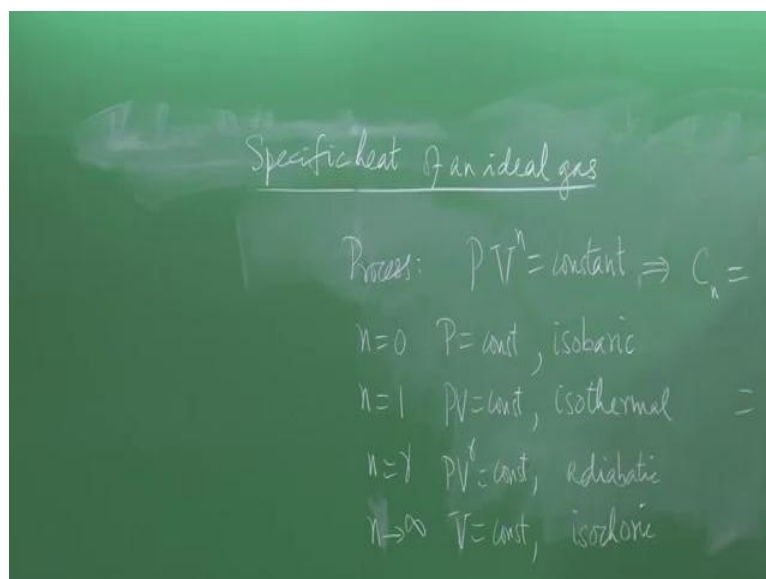 Specific heat of an ideal gas
Process: PVⁿ = constant, ⇒ Cₙ =
n=0 P=const, isobaric
n=1 PV=const, isothermal =
n=γ PV^γ=const, adiabatic
n→∞ V=const, isochoric